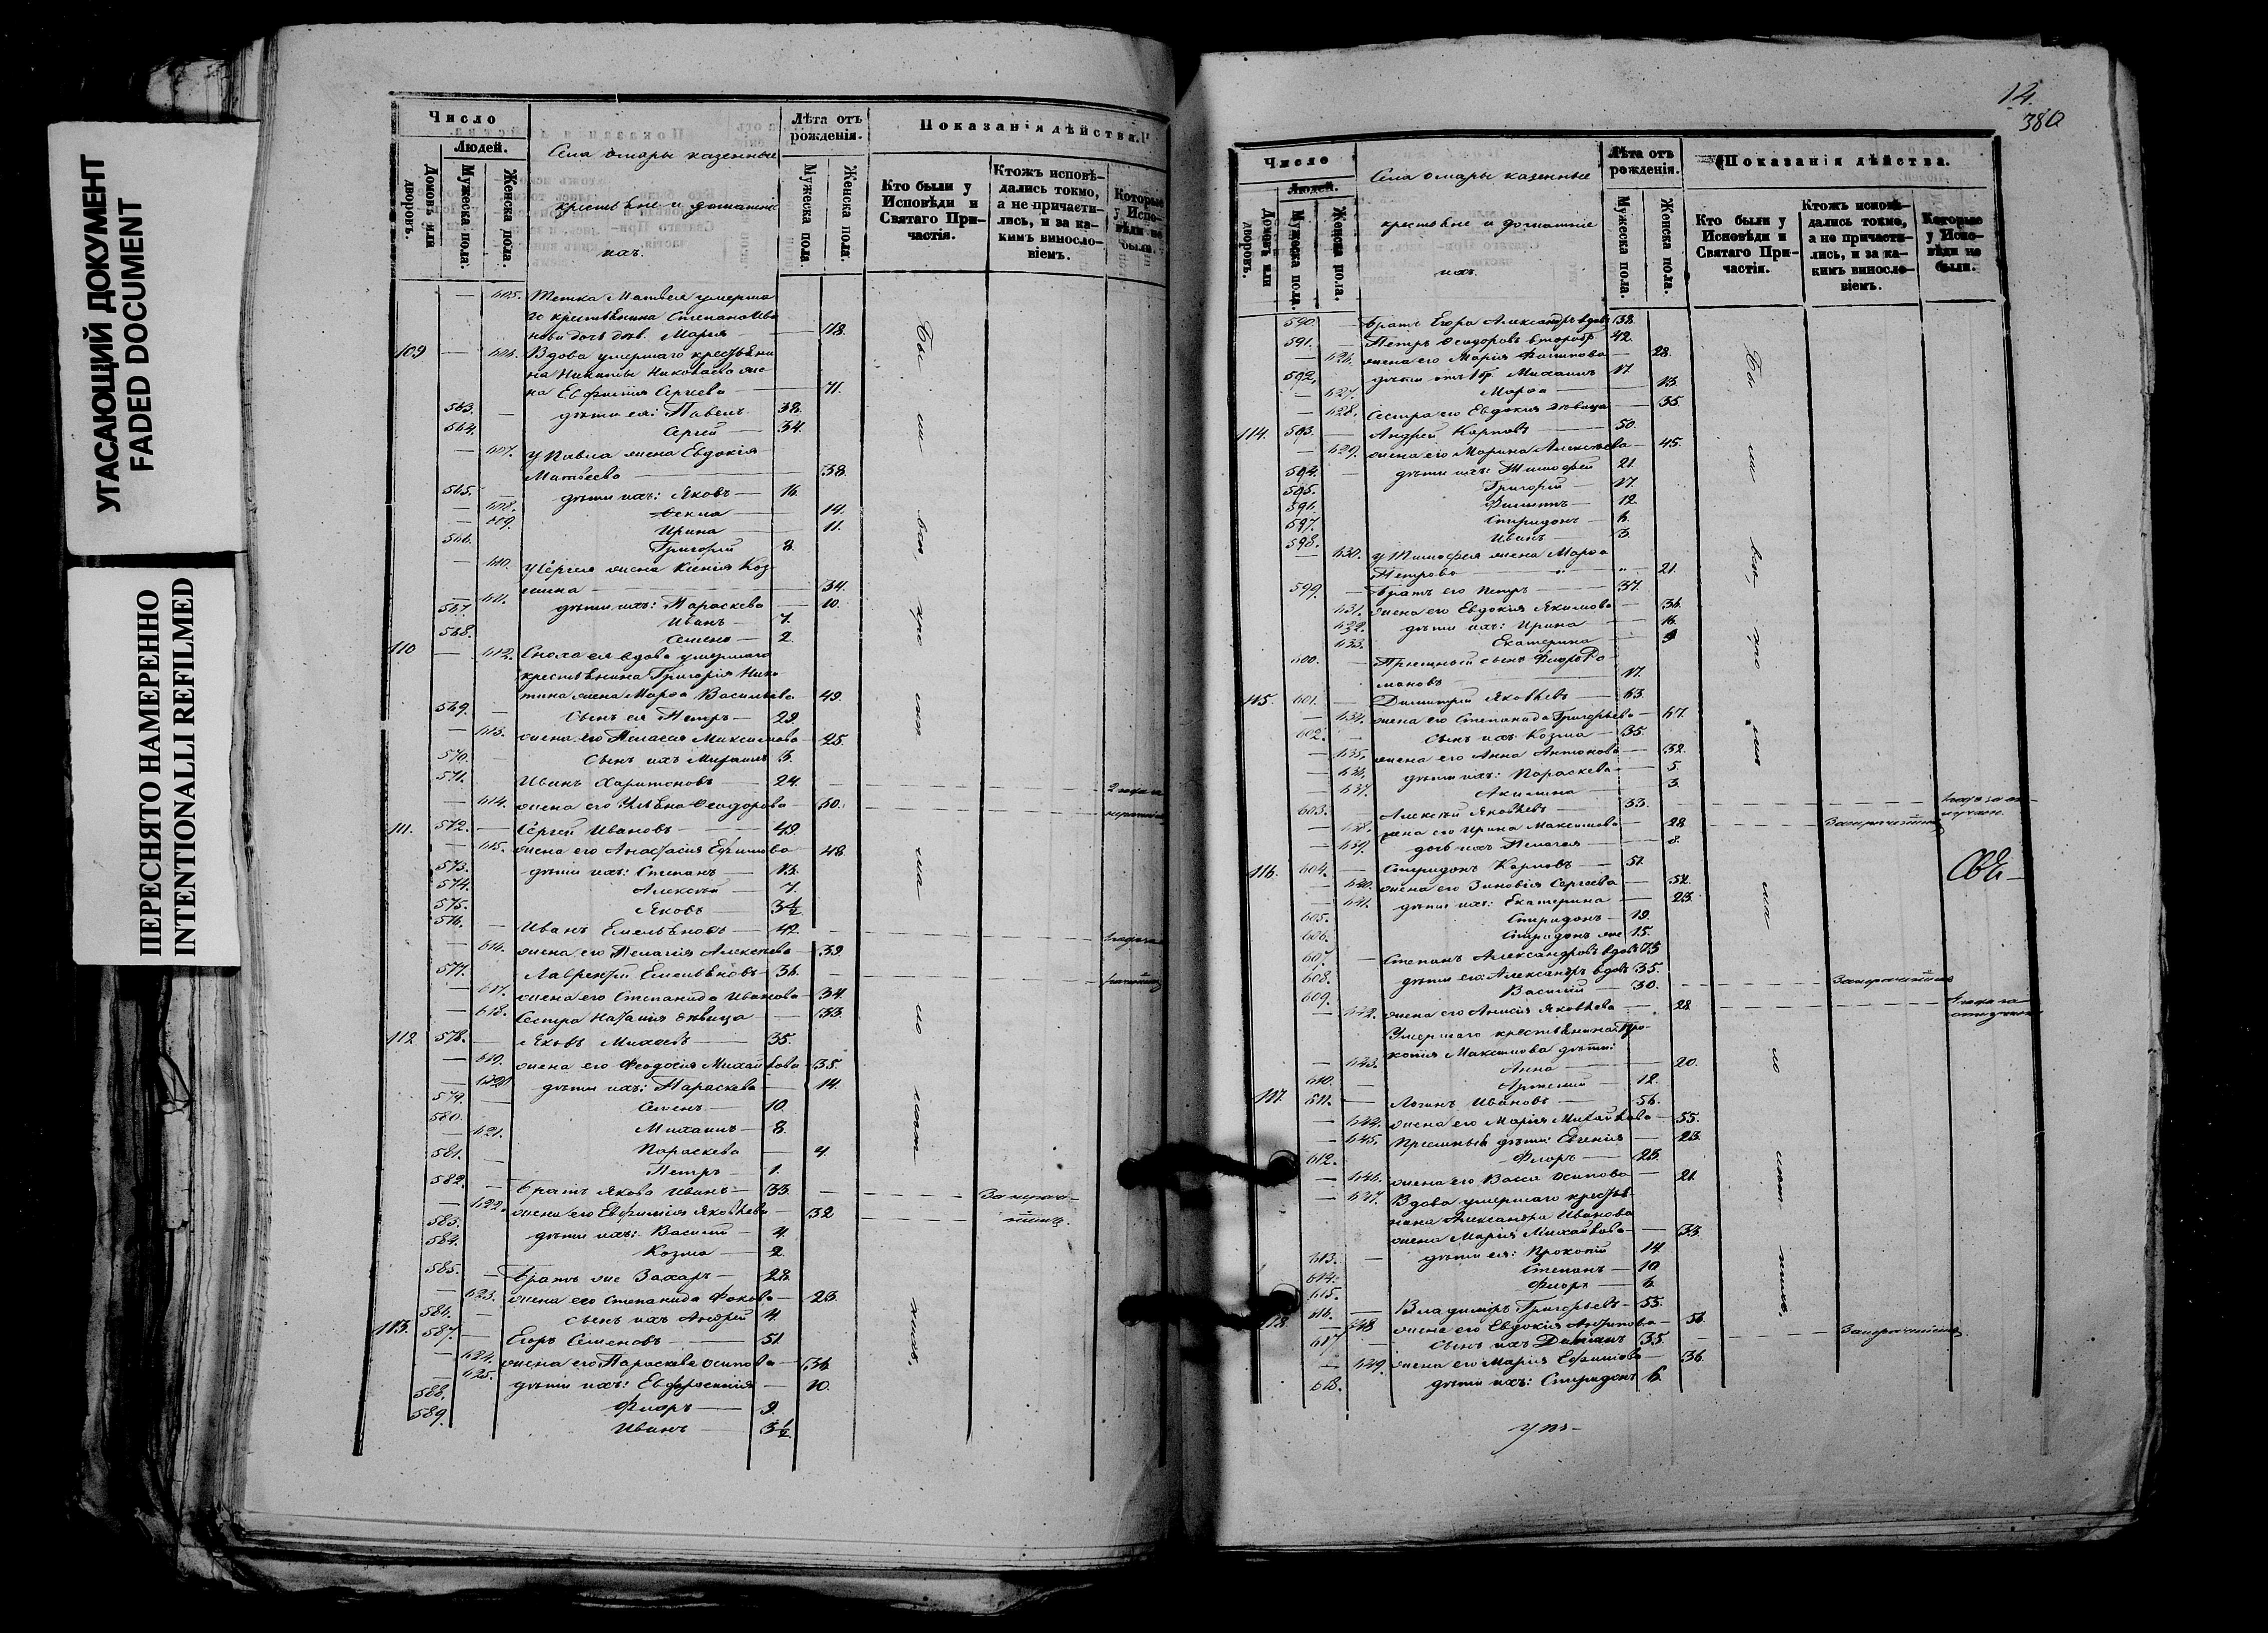 УГАСАЮЩИЙ ДОКУМЕНТ
FADED DOCUMENT
ПЕРЕСНЯТО НАМЕРЕННО
INTENTIONALLI REFILMED
Число
Людей.
Домовъ или дворовъ.
Мужеска пола.
Женска пола.
Села Омары казенные
крестьяне и домашніе
ихъ.
Лѣта отъ рожденія.
Мужеска пола.
Женска пола.
Показанія дѣйства.
Кто были у Исповѣди и Святаго Причастія.
Ктожъ исповѣдались токмо, а не причастились, и за какимъ винословіемъ.
Которые у Исповѣди не были.
605. Тетка Матвея умерша
го крестьянина Степана Ива
нова дочь дѣв. Марія — 118.
109 — 606. Вдова умершаго крестьяни
на Никиты Николаева же
на Евфимія Сергеева — 71.
563. — дѣти ея: Павелъ — 38.
564. Сергей — 34.
— 607. у Павла жена Евдокія
Матвеева — 38.
565. — дѣти ихъ: Яковъ — 16.
— 608. Фекла — 14.
— 609. Ирина — 11.
566. Григорій 8.
— 610. у Сергея жена Ксенія Коз
мина — 34.
— 611. дѣти ихъ: Параскева — 10.
567. Иванъ — 7.
568. Семенъ — 2.
110 — 612. Сноха ея вдова умершаго
крестьянина Григорія Ники
тина жена Марѳа Васильева — 49.
569. — Сынъ ея Петръ — 29.
— 613. жена его Пелагея Максимова — 25.
570. — Сынъ ихъ Михаилъ 3.
571. Иванъ Харитоновъ — 24.
— 614. жена его Ульяна Ѳеодорова — 50.
111. 572. — Сергей Ивановъ — 49
— 615. жена его Анастасія Ефимова — 48.
573. дѣти ихъ: Степанъ — 13.
574. Алексѣй — 7.
575. Яковъ — 3½
576. — Иванъ Емельяновъ — 42.
— 616. жена его Пелагія Алексѣева — 39.
577. — Лаврентій Емельяновъ — 36.
— 617. жена его Степанида Иванова — 34.
— 618. Сестра Наталія дѣвица — 33.
112 578. — Яковъ Михеевъ — 35.
— 619. жена его Феодосія Михайлова — 35.
— 620. дѣти ихъ: Параскева — 14.
579. — Семенъ — 10.
580. Михаилъ — 8.
— 621. Параскева — 4.
581. Петръ — 1.
582. — братъ Якова Иванъ — 33.
— 622. жена его Евфимія Яковлева — 32
583. дѣти ихъ: Василій — 4.
584. Козма — 2.
585. — братъ же Захаръ — 28.
— 623. жена его Степанида Фокова — 23.
586. — сынъ ихъ Андрей 4.
113. 587. — Егоръ Семеновъ — 51.
— 624. жена его Параскева Осипова — 36.
— 625. дѣти ихъ: Евфросинія — 10.
588. Флоръ — 9.
589. Иванъ — 3½.
14.
380
Число
Людей.
Домовъ или дворовъ.
Мужеска пола.
Женска пола.
Села Омары казенные
крестьяне и домашніе
ихъ.
Лѣта отъ рожденія.
Мужеска пола.
Женска пола.
Показанія дѣйства.
Кто были у Исповѣди и Святаго Причастія.
Ктожъ исповѣдались токмо, а не причастились, и за какимъ винословіемъ.
Которые у Исповѣди не были.
590. — братъ Егора Александръ вдовъ 38.
591. — Петръ Ѳеодоровъ второбр. 42.
— 626. жена его Марія Филипова — 28.
592. дѣти отъ 1 бр. Михаилъ 17.
— 627. Марѳа — 13.
— 628. Сестра его Евдокія дѣвица — 35.
114. 593. — Андрей Карповъ — 50.
— 629. жена его Марина Алексѣева — 45.
594. — дѣти ихъ: Тимофей 21.
595. Григорій — 17.
596. Филиппъ — 12.
597. Спиридонъ — 6.
598. Иванъ — 3.
— 630. у Тимофея жена Марѳа
Петрова — 21.
599. — братъ его Петръ — 37.
631. жена его Евдокія Якимова — 36.
632. дѣти ихъ: Ирина — 16.
633. Екатерина — 9
600. — Пріемный сынъ Флоръ Ро
мановъ — 17.
115. 601. — Димитрій Яковлевъ — 63.
— 634. жена его Степанида Григорьева — 67.
602. — сынъ ихъ Козма — 35.
— 635. жена его Анна Антонова — 32.
— 636. дѣти ихъ: Параскева — 5.
— 637. Акилина — 3.
603. Алексѣй Яковлевъ — 33.
— 638. жена его Ирина Максимова — 28
— 639. дочь ихъ Пелагея — 8.
116. 604. — Спиридонъ Карповъ — 51.
— 640. жена его Зиновія Сергеева — 52.
— 641. дѣти ихъ: Екатерина — 23.
605. Спиридонъ — 19.
606. Спиридонъ же 15.
607. — Степанъ Александровъ вдовъ 75
608. дѣти его: Александръ вдовъ 35.
609. Василій — 30.
— 642. жена его Анисія Яковлева — 28
Умершаго крестьянина Про
копія Максимова дѣти:
— 643. Анна — 20.
610. — Артемій — 12.
117. 611. — Логинъ Ивановъ — 56.
— 644. жена его Марія Михайлова — 55.
— 645. Пріемныя дѣти: Евгенія — 23.
612. Флоръ — 23.
— 646. жена его Васса Осипова — 21.
— 647. Вдова умершаго крестья
нина Александра Иванова
жена Марія Михайлова — 33.
613. — дѣти ея: Прокопій 14.
614. Степанъ — 10
615. Флоръ — 6.
118. 616. — Владиміръ Григорьевъ — 55.
— 648 жена его Евдокія Антипова — 56.
617 — сынъ ихъ Даміанъ 35.
— 649. жена его Марія Ефимова — 36.
618. дѣти ихъ: Спиридонъ 6.